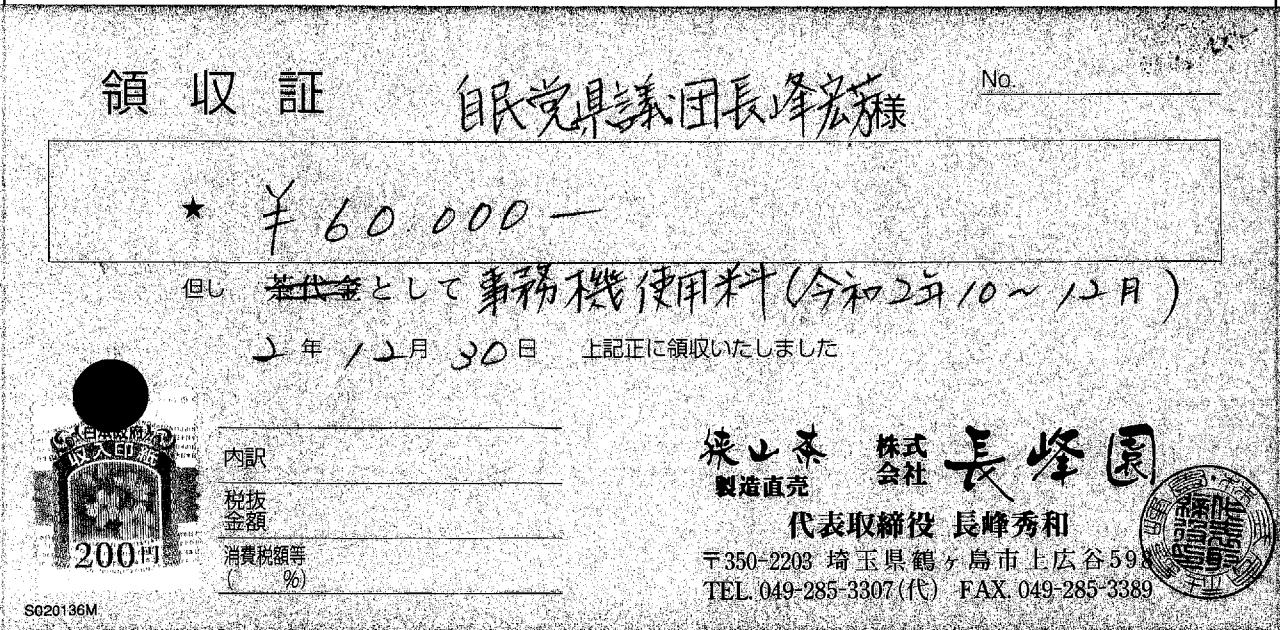 領収証 自民党県議団長峰宏芳様 No.
★ ¥60.000―
但し 茶代金として事務機使用料(令和2年10～12月)
2年12月30日 上記正に領収いたしました
収入印紙
200円
内訳
税抜金額
消費税額等( %)
狭山茶 製造直売 株式会社 長峰園
代表取締役 長峰秀和
〒350-2203 埼玉県鶴ヶ島市上広谷598
TEL. 049-285-3307(代) FAX. 049-285-3389
S020136M